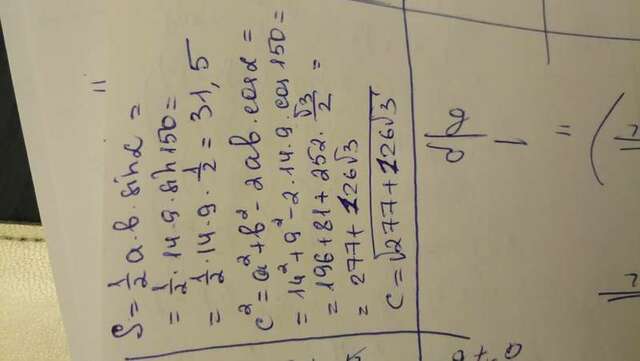 S = 1/2 a · b · sinα =
= 1/2 · 14 · 9 · sin 150 =
= 1/2 · 14 · 9 · 1/2 = 31,5
c² = a² + b² - 2ab · cosα =
= 14² + 9² - 2 · 14 · 9 · cos 150 =
= 196 + 81 + 252 · √3/2 =
= 277 + 126√3
c = √(277 + 126√3)